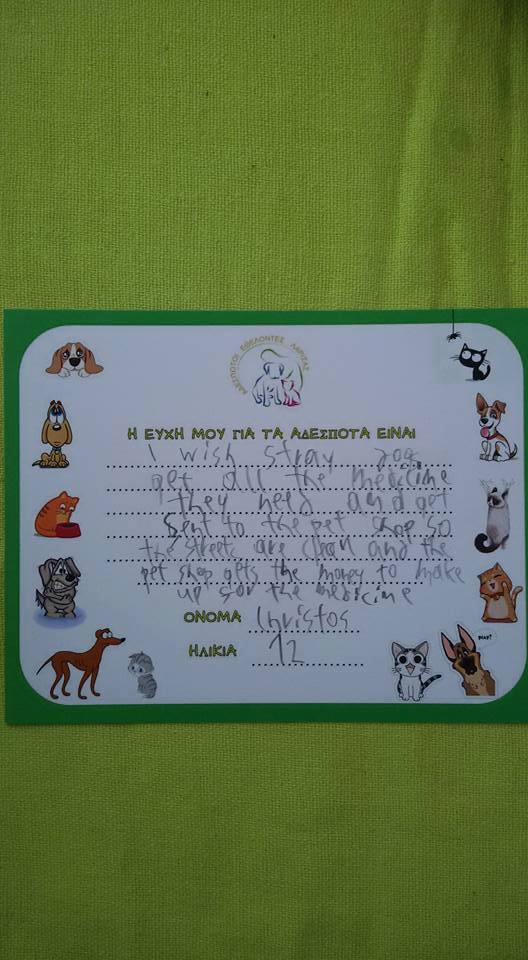 ΑΔΕΣΠΟΤΟΙ ΕΘΕΛΟΝΤΕΣ ΛΑΡΙΣΑΣ
Η ΕΥΧΗ ΜΟΥ ΓΙΑ ΤΑ ΑΔΕΣΠΟΤΑ ΕΙΝΑΙ
I wish stray dogs
get all the medicine
they need and get
sent to the pet shop so
the streets are clean and the
pet shop gets the money to make
up for the medicine
ΟΝΟΜΑ Christos
ΗΛΙΚΙΑ 12